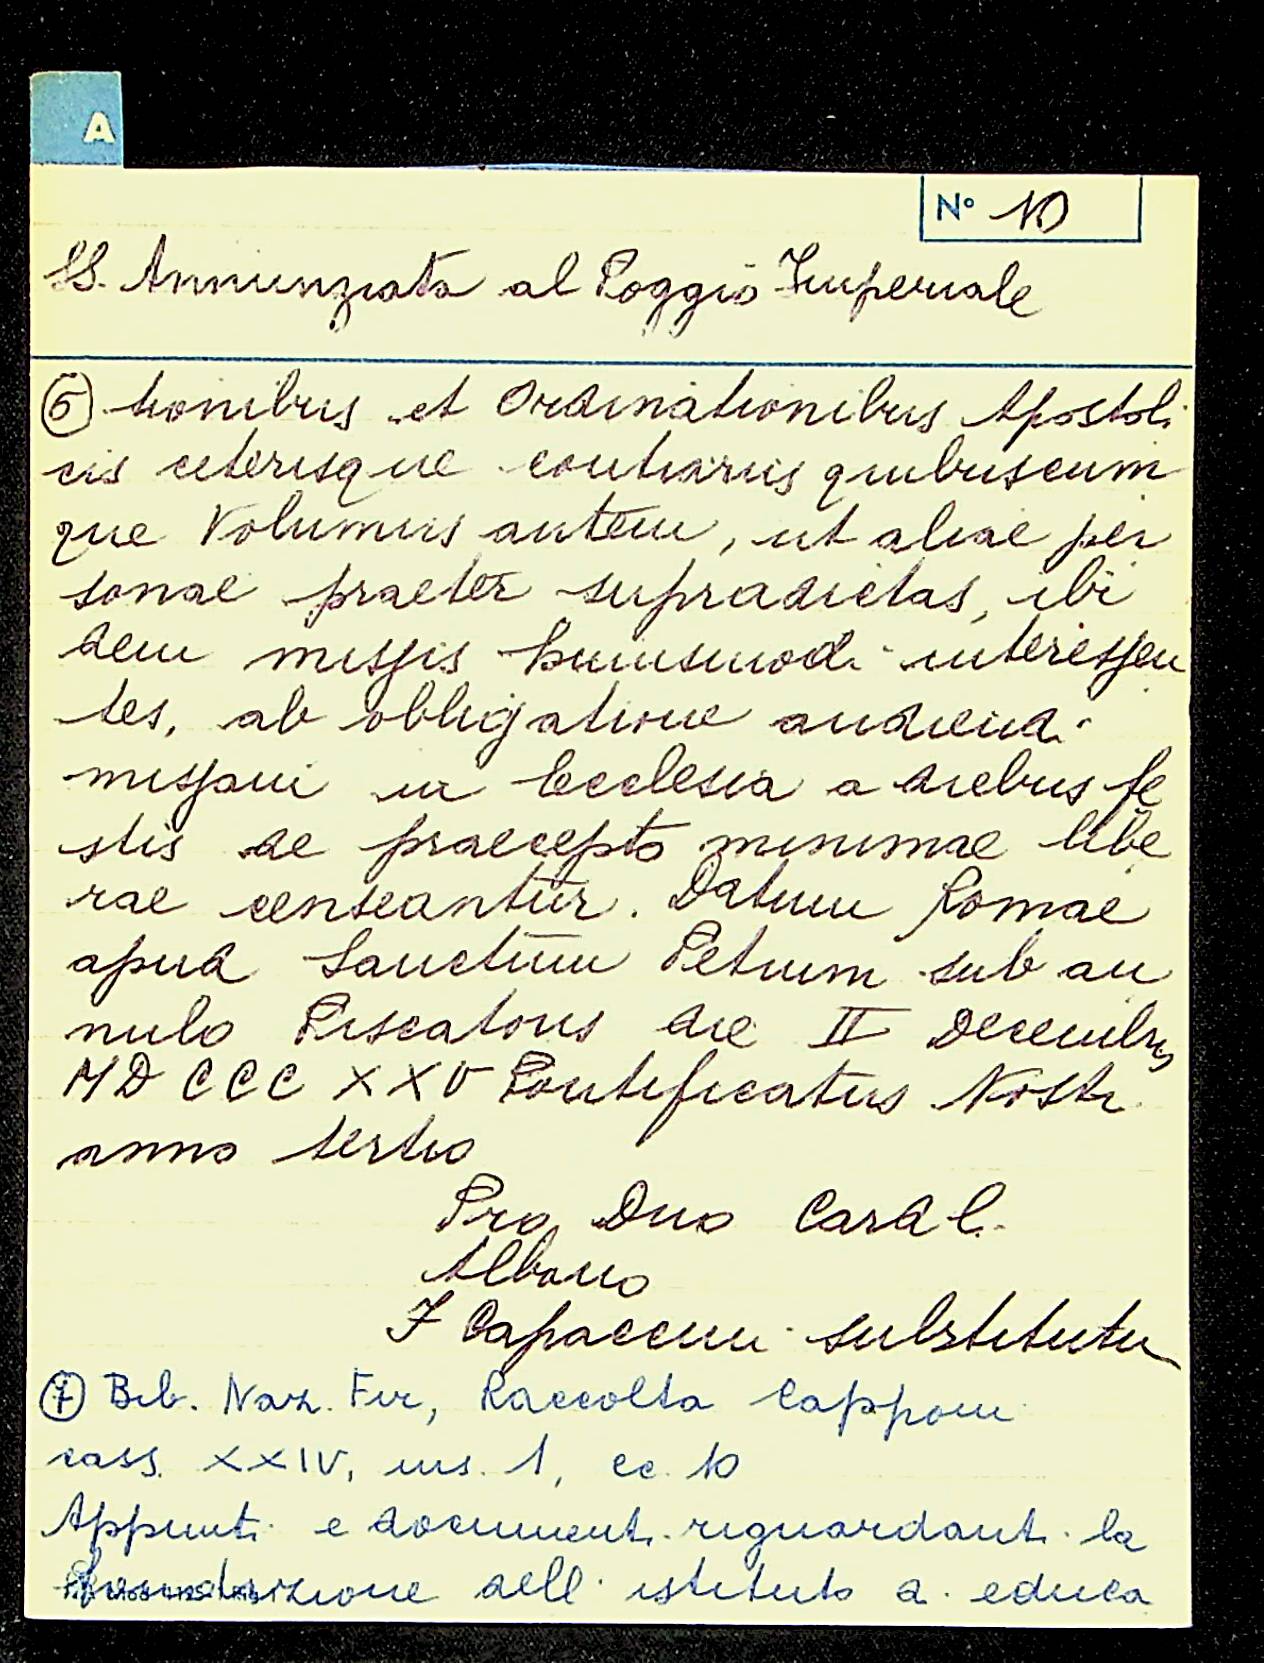 A
N° 10
SS. Annunziata al Poggio Imperiale
6) tionibus et Ordinationibus Apostoli
cis ceterisque contrariis quibuscum
que Volumus autem, ut aliae per
sonae praeter supradictas, ibi
dem missis huiusmodi interessen
tes, ab obligatione audiendi
missam in Ecclesia a diebus fe
stis de praecepto minimae libe
rae censeantur. Datum Romae
apud Sanctum Petrum sub an
nulo Piscatoris die II Decembris
MDCCCXXV Pontificatus Nostri
anno tertio
Pro Dno Card l.
Albano
F Capaccini substitutus
7) Bib. Naz. Fir, Raccolta Capponi
cass. XXIV, ins. 1, cc. 10
Appunti e documenti riguardanti la
fondazione dell'istituto di educa